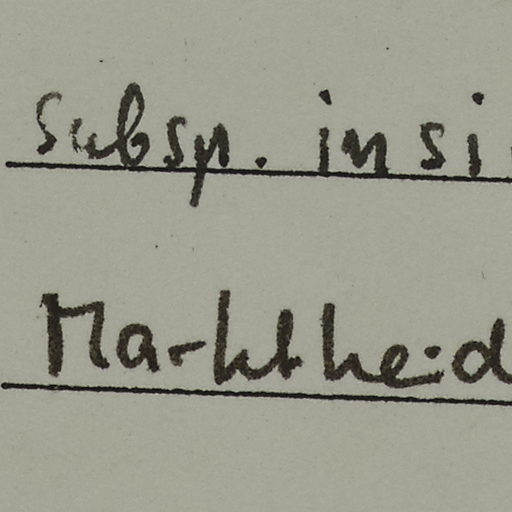 subsp. insi
Marktheid